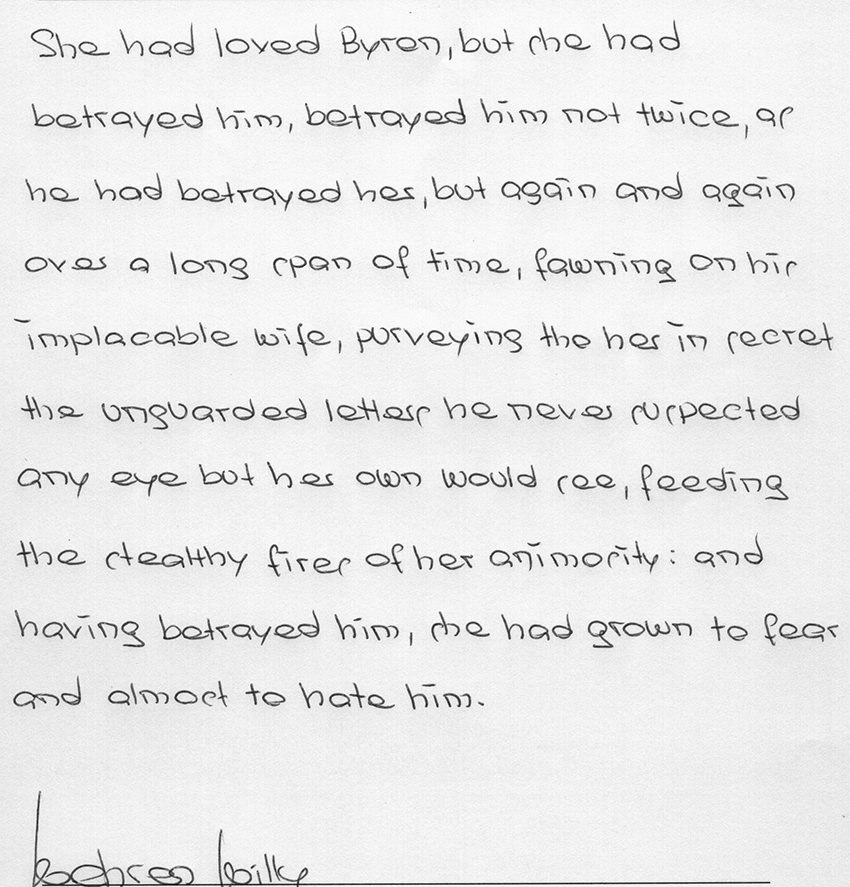 She had loved Byron, but she had
betrayed him, betrayed him not twice, as
he had betrayed her, but again and again
over a long span of time, fawning on his
implacable wife, purveying tho her in secret
the unguarded letters he never suspected
any eye but her own would see, feeding
the stealthy fires of her animosity: and
having betrayed him, she had grown to fear
and almost to hate him.